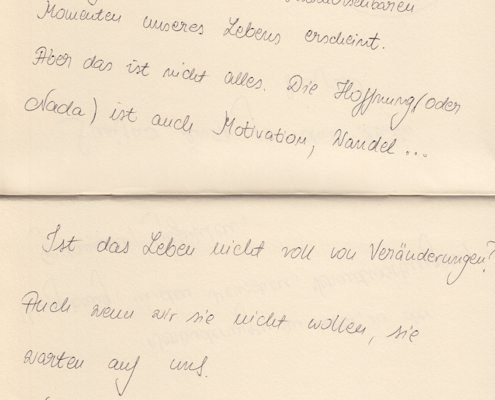 Momenten unseres Lebens erscheint.
Aber das ist nicht alles. Die Hoffnung (oder
Nada) ist auch Motivation, Wandel...
Ist das Leben nicht voll von Veränderungen?
Auch wenn wir sie nicht wollen, sie
warten auf uns.